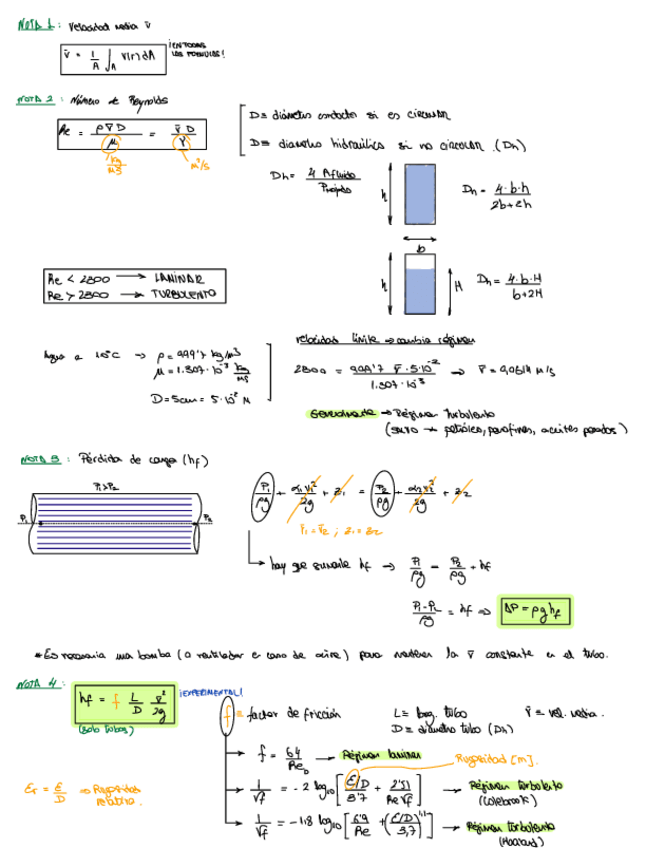 NOTA 1: Velocidad media v̄
v̄ = 1/A ∫_A v(r) dA
¡EN TODAS LAS FORMULAS!
NOTA 2: Número de Reynolds
Re = ρ v̄ D / μ = v̄ D / γ
kg/ms
m²/s
D ≡ diámetro conducto si es circular
D ≡ diametro hidraulico si no circular. (Dh)
Dh = 4 A fluido / P mojado
h
b
Dh = 4·b·h / 2b+2h
h
H
Dh = 4·b·H / b+2H
Re < 2300 → LAMINAR
Re > 2300 → TURBULENTO
Agua a 10°C → ρ = 999'7 kg/m3
μ = 1.307·10⁻³ kg/ms
D = 5cm = 5·10⁻² M
velocidad límite → cambia régimen
2300 = 999'7 · v̄ · 5·10⁻² / 1.307·10⁻³ → v̄ = 0,0614 M/s
Generalmente → Régimen turbulento
petróleo, parafinas, aceites pesados)
NOTA 3: Pérdida de carga (hf)
P1 > P2
P1
P2
P1/ρg + α1 v1²/2g + z1 = P2/ρg + α2 v2²/2g + z2
v̄1 = v̄2 ; z1 = z2
hay que sumarle hf → P1/ρg = P2/ρg + hf
P1-P2/ρg = hf ⇒ ΔP = ρ g hf
* Es necesaria una bomba (o ventilador en caso de aire) para mantener la v̄ constante en el tubo.
NOTA 4:
hf = f L/D v̄²/2g
(solo tubos)
¡EXPERIMENTAL!
f = factor de fricción
L ≡ long. tubo
v̄ ≡ vel. media.
D ≡ diámetro tubo (Dh)
f = 64/Re_D → Régimen laminar
Rugosidad [m].
Er = E/D ⇒ Rugosidad relativa.
1/√f = -2 log10 [ E/D / 3'7 + 2'51 / Re √f ] → Régimen turbulento (Colebrook)
1/√f = -1.8 log10 [ 6'9/Re + (E/D / 3,7)^1'11 ] → Régimen turbulento (Haaland)